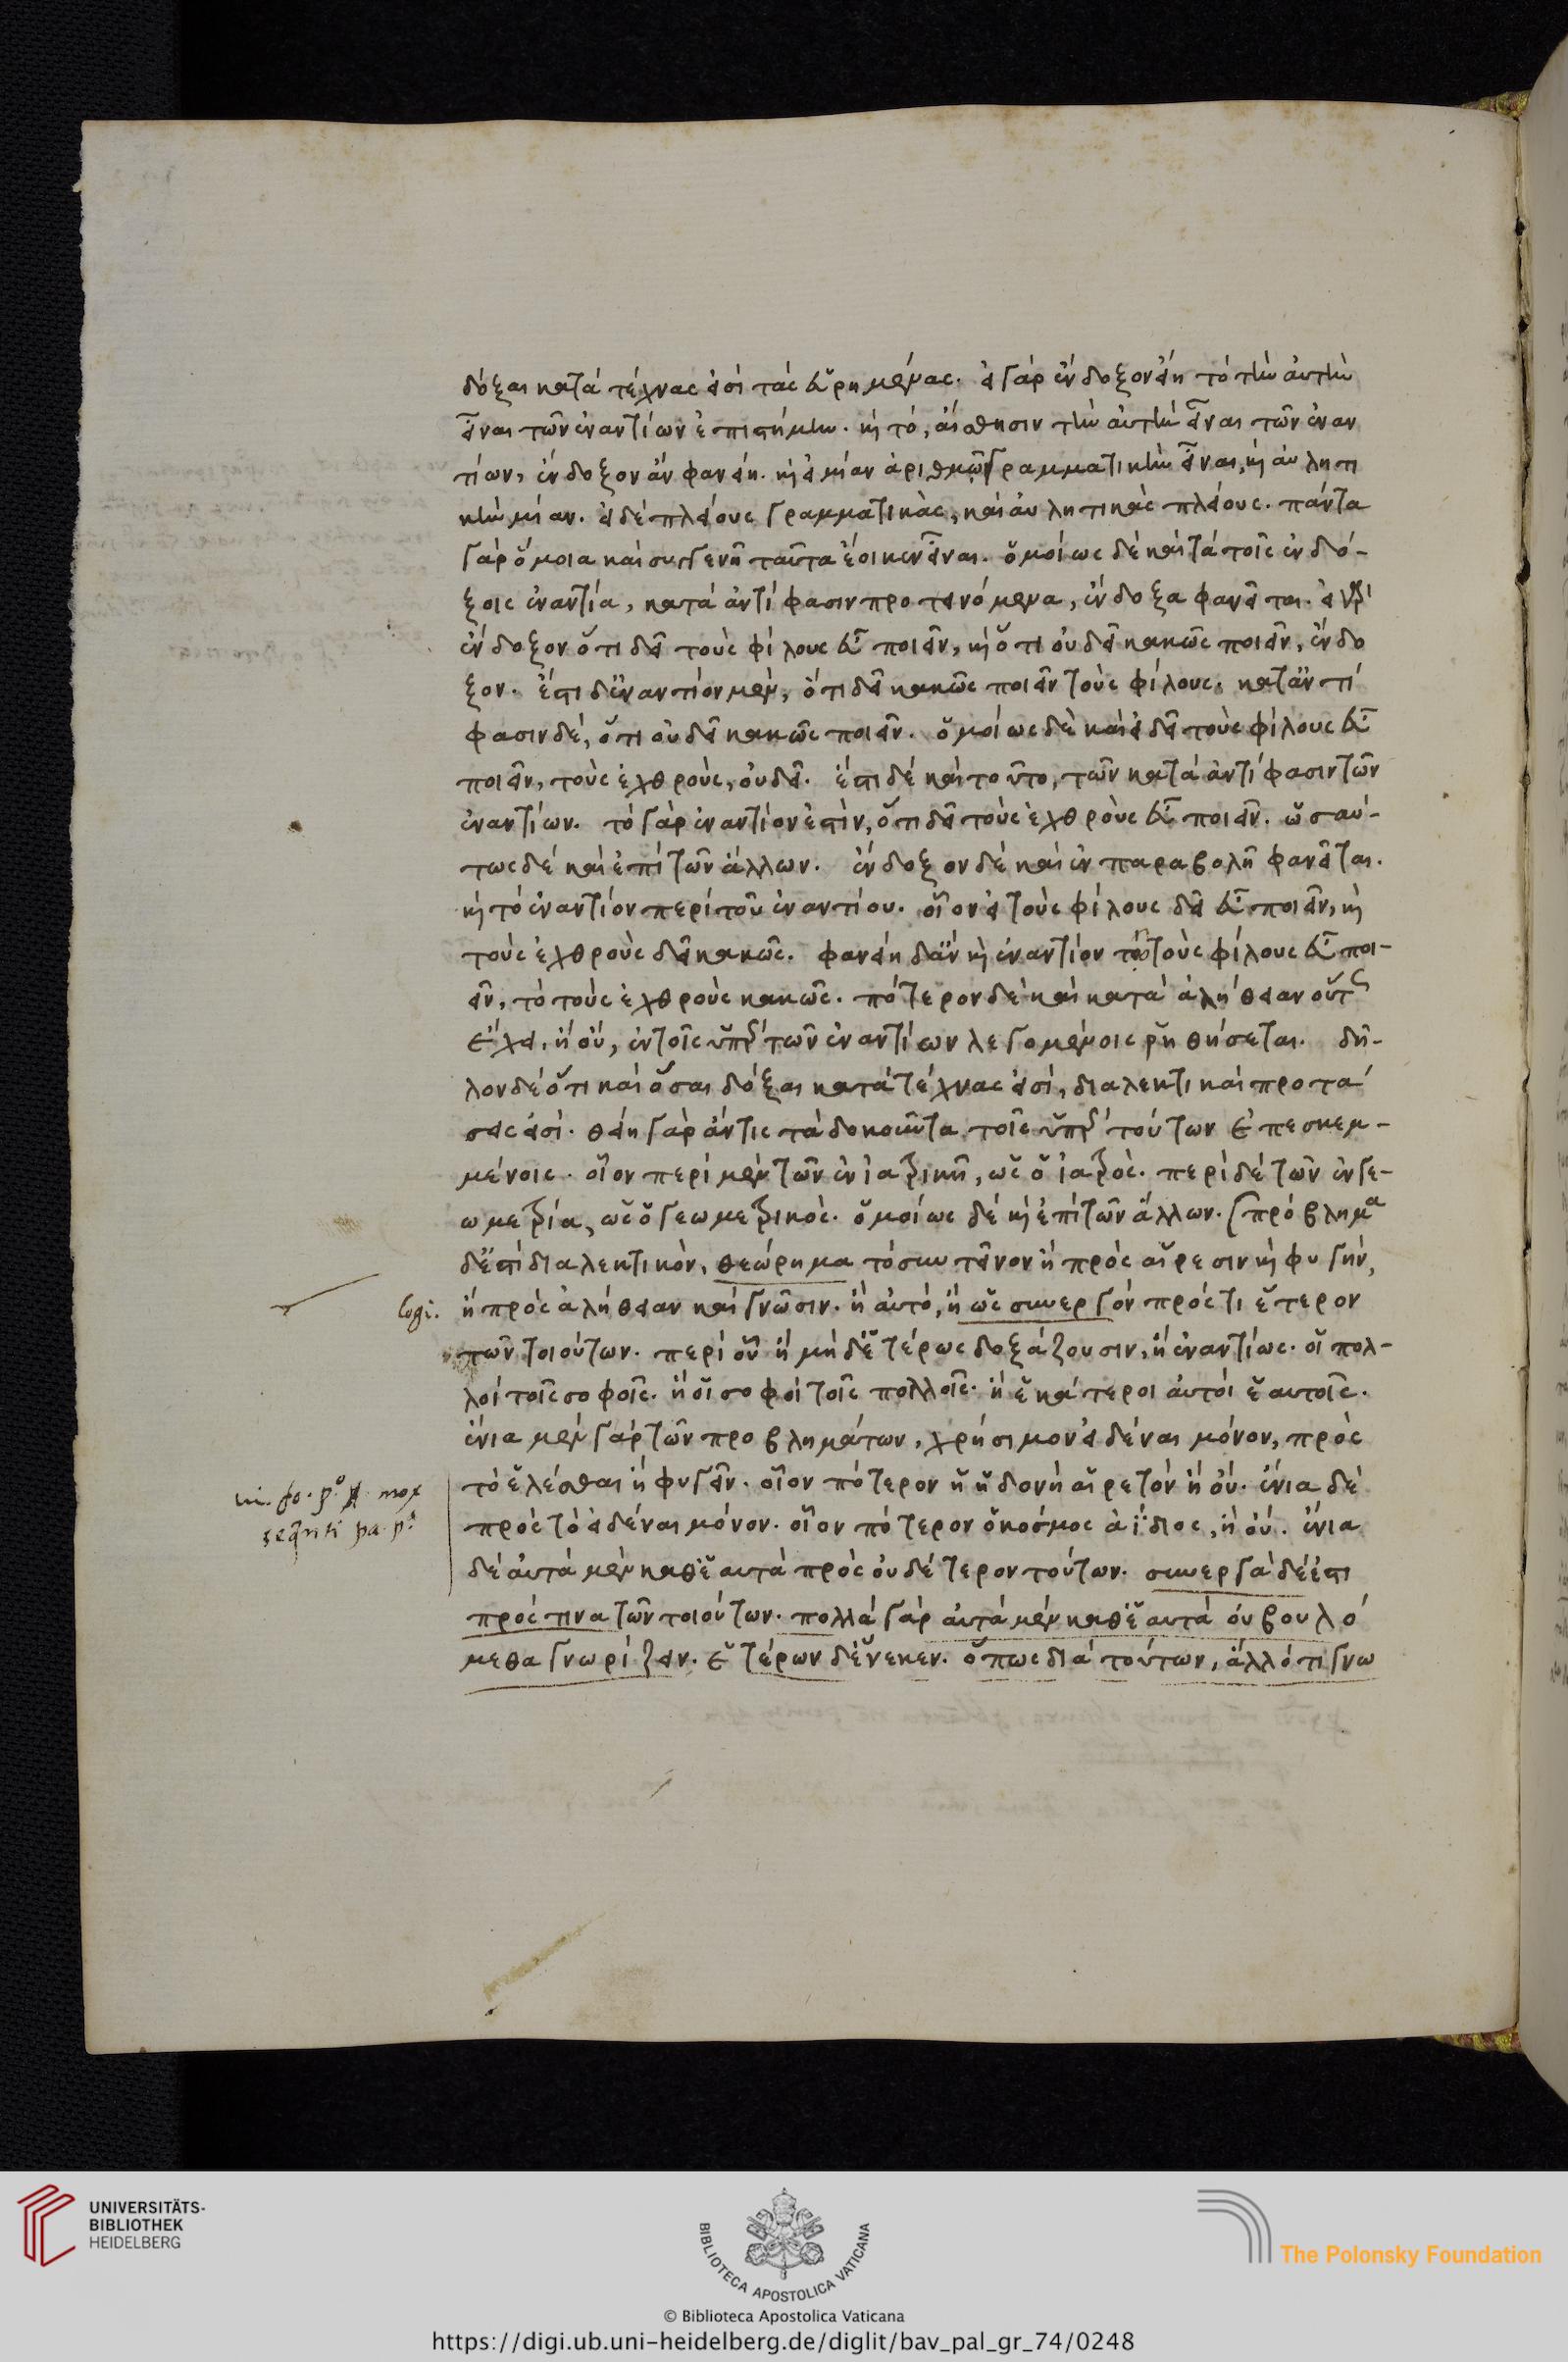 δόξαι κατὰ τέχνας εἰσὶ τὰς εὑρημένας. εἰ γὰρ ἔνδοξον εἴη τὸ τὴν αὐτὴν
εἶναι τῶν ἐναντίων ἐπιστήμην. καὶ τό, αἴσθησιν τὴν αὐτὴν εἶναι τῶν ἐναν
τίων, ἔνδοξον ἂν φανείη. καὶ εἰ μίαν ἀριθμῷ γραμματικὴν εἶναι, καὶ αὐλητι
κὴν μίαν. εἰ δὲ πλείους γραμματικὰς, καὶ αὐλητικὰς πλείους. πάντα
γὰρ ὅμοια καὶ συγγενῆ ταῦτα ἔοικεν εἶναι. ὁμοίως δὲ καὶ τὰ τοῖς ἐνδό-
ξοις ἐναντία, κατὰ ἀντίφασιν προτεινόμενα, ἔνδοξα φανεῖται. εἰ γὰρ
ἔνδοξον ὅτι δεῖ τοὺς φίλους εὖ ποιεῖν, καὶ ὅτι οὐ δεῖ κακῶς ποιεῖν, ἔνδο
ξον. ἔστι δ' ἐναντίον μὲν, ὅτι δεῖ κακῶς ποιεῖν τοὺς φίλους. κατ' ἀντί
φασιν δὲ, ὅτι οὐ δεῖ κακῶς ποιεῖν. ὁμοίως δὲ καὶ εἰ δεῖ τοὺς φίλους εὖ
ποιεῖν, τοὺς ἐχθροὺς, οὐ δεῖ. ἔστι δὲ καὶ τοῦτο, τῶν κατὰ ἀντίφασιν τῶν
ἐναντίων. τὸ γὰρ ἐναντίον ἐστὶν, ὅτι δεῖ τοὺς ἐχθροὺς εὖ ποιεῖν. ὡσαύ-
τως δὲ καὶ ἐπὶ τῶν ἄλλων. ἔνδοξον δὲ καὶ ἐν παραβολῇ φανεῖται.
καὶ τὸ ἐναντίον περὶ τοῦ ἐναντίου. οἷον εἰ τοὺς φίλους δεῖ εὖ ποιεῖν, καὶ
τοὺς ἐχθροὺς δεῖ κακῶς. φανείη δ' ἂν καὶ ἐναντίον τὸ τοὺς φίλους εὖ ποι-
εῖν, τὸ τοὺς ἐχθροὺς κακῶς. πότερον δὲ καὶ κατὰ ἀλήθειαν οὕτως
ἔχει, ἢ οὔ, ἐν τοῖς ὑπὲρ τῶν ἐναντίων λεγομένοις ῥηθήσεται. δῆ-
λον δὲ ὅτι καὶ ὅσαι δόξαι κατὰ τέχνας εἰσὶ, διαλεκτικαὶ προτά
σεις εἰσί. θείη γὰρ ἄν τις τὰ δοκοῦντα τοῖς ὑπὲρ τούτων ἐπεσκεμ-
μένοις. οἷον περὶ μὲν τῶν ἐν ἰατρικῇ, ὡς ὁ ἰατρός. περὶ δὲ τῶν ἐν γε-
ωμετρίᾳ, ὡς ὁ γεωμετρικός. ὁμοίως δὲ καὶ ἐπὶ τῶν ἄλλων. πρόβλημα
δ' ἐστὶ διαλεκτικὸν, θεώρημα τὸ συντεῖνον ἢ πρὸς αἵρεσιν καὶ φυγήν,
ἢ πρὸς ἀλήθειαν καὶ γνῶσιν. ἢ αὐτό, ἢ ὡς συνεργόν πρός τι ἕτερον
τῶν τοιούτων. περὶ οὗ ἢ μηδ' ἑτέρως δοξάζουσιν, ἢ ἐναντίως. οἱ πολ-
λοὶ τοῖς σοφοῖς. ἢ οἱ σοφοὶ τοῖς πολλοῖς. ἢ ἑκάτεροι αὐτοὶ ἑαυτοῖς.
ἔνια μὲν γὰρ τῶν προβλημάτων, χρήσιμον εἰδέναι μόνον, πρὸς
τὸ ἑλέσθαι ἢ φυγεῖν. οἷον πότερον ἡ ἡδονὴ αἱρετὸν ἢ οὔ. ἔνια δὲ
πρὸς τὸ εἰδέναι μόνον. οἷον πότερον ὁ κόσμος ἀΐδιος, ἢ οὔ. ἔνια
δὲ αὐτὰ μὲν καθ' ἑαυτὰ πρὸς οὐδέτερον τούτων. συνεργὰ δέ ἐστι
πρός τινα τῶν τοιούτων. πολλὰ γὰρ αὐτὰ μὲν καθ' ἑαυτὰ οὐ βουλό
μεθα γνωρίζειν. ἑτέρων δ' ἕνεκεν. ὅπως διὰ τούτων, ἄλλό τι γνω
logi.
mox
UNIVERSITÄTS-
BIBLIOTHEK
HEIDELBERG
BIBLIOTECA APOSTOLICA VATICANA
© Biblioteca Apostolica Vaticana
The Polonsky Foundation
https://digi.ub.uni-heidelberg.de/diglit/bav_pal_gr_74/0248